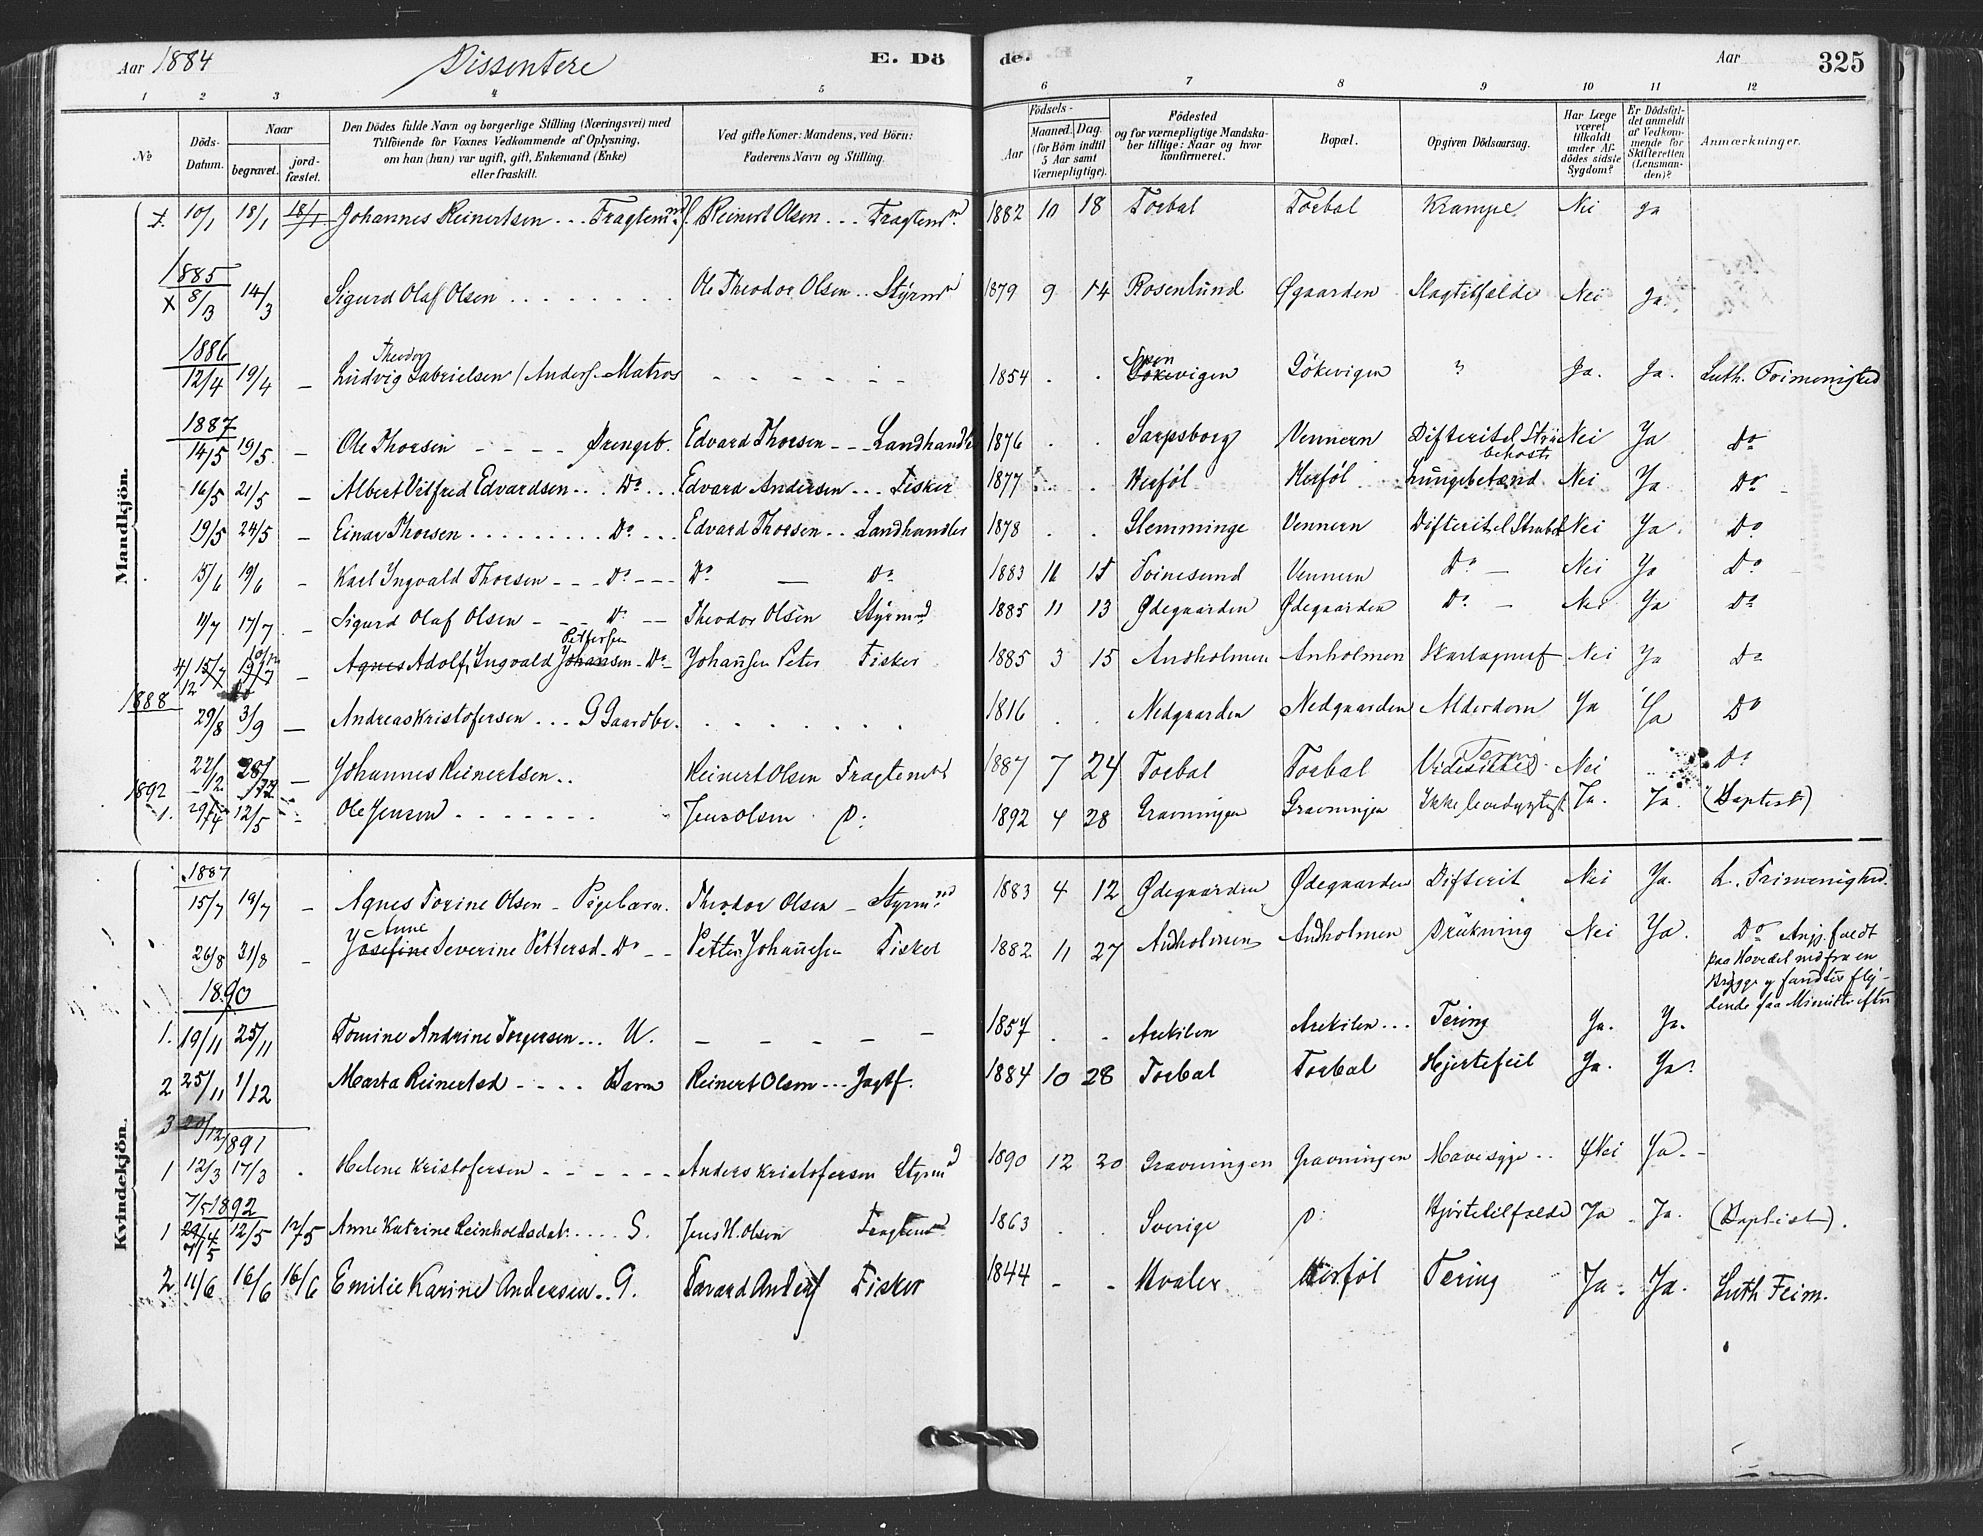 Aar 1884 Dissentere E. Dö de. Aar 325
1 2 3 4 5 6 7 8 9 10 11 12
No Döds-Datum. Naar begravet. jord-fæstet. Den Dödes fulde Navn og borgerlige Stilling (Næringsvei) med Tilföiende for Voxnes Vedkommende af Oplysning, om han (hun) var ugift, gift, Enkemand (Enke) eller fraskilt. Ved gifte Koner: Mandens, ved Börn: Faderens Navn og Stilling. Födsels- Aar Maaned. Dag. (for Börn indtil 5 Aar samt Værnepligtige). Födested og for værnepligtige Mandskaber tillige: Naar og hvor konfirmeret. Bopæl. Opgiven Dödsaarsag. Har Læge været tilkaldt under Afdödes sidste Sygdom? Er Dödsfaldet anmeldt af Vedkommende for Skifteretten (Lensmanden)? Anmærkninger.
Mandkjön.
10/1 18/1 18/1 Johannes Reinertsen ... Fragtemd. f. Reinert Olsen ... Fragtemd. 1882 10 18 Torbal Torbal Krampe Nei ja
1885
X 8/3 14/3 Sigurd Olaf Olsen Ole Theodor Olsen .. Styrmd 1879 9 14 Rosenlund Øgaarden Slagtilfælde Nei ja.
1886
12/4 19/4 - Ludvig Theodor Gabrielsen / Anders. Matros 1854 . . Gökevigen Ja. Ja. Luth. Frimenighed
1887
14/5 19/5 - Ole Thorsen - - - - Drengeb. Edvard Thorsen - - Landhandler 1876 . . Sarpsborg Vennern Difterit el. Strubehoste Nei Ja Do
16/5 21/5 - Albert Vilfred Edvardsen .. Do ... Edvard Andersen ... Fisker 1877 . . Herföl Herföl Lungebetænd Nei Ja Do
19/5 24/5 - Einar Thorsen ......... Do ... Edvard Thorsen .. Landhandler 1878 . . Glemminge Vennern Difterit el. Strubeh Nei Ja. Do
15/6 19/6 - Karl Ingvald Thorsen - - - Do - - - Do - Do 1883 11 15 Svinesund Vennern Do - Nei Ja Do
11/7 17/7 - Sigurd Olaf Olsen - - - Do - - Theodor Olsen Styrmd 1885 11 13 Ødegaarden Ødegaarden Do - Nei Ja Do
4/12 15/7 19/7 - Agnes Adolf Ingvald Johansen Pettersen - Do - Johansen Peter Fisker 1885 3 15 Andholmen Anholmen Nei Ja Do
1888
29/8 3/9 - Andreas Kristofersen ... G Gaardbr. 1816 . . Nedgaarden Nedgaarden Alderdom Ja Ja Do
22/12 28/12 - Johannes Reinertsen .. Reinert Olsen Fragtemd 1887 7 24 Torbal Torbal Nei .. Do
1892
1. 29/4 12/5 - Ole Jensen Jens Olsen 1892 4 28 Gravningen Gravningen Ikke levedygtigt Ja. Ja. (Baptist)
Kvindekjön.
1887
15/7 19/7 - Agnes Torine Olsen - Pigebarn. Theodor Olsen - Styrmd 1883 4 12 Ødegaarden Ødegaarden Difterit Nei Ja. L. Frimenighed.
26/8 31/8 - Josefine Anne Severine Pettersd - Do - - Petter Johannesen Fisker 1882 11 27 Andholmen Andholmen Drukning Nei Ja. Do
paa Hovedet ned fra en
Brygge og fandtes flydende
1890
1. 19/11 25/11 Tomine Andrine Torgersen ... U. - - - - - 1857 . . Arekilen Arekilen ... Tering Ja. Ja.
2 25/11 1/12 Marta Reinertsd - - - - Barn Reinert Olsen - - - Jagtf. 1884 10 28 Torbal Torbal Hjertefeil Ja. Ja.
3 20/12
1891
1 12/3 17/3 . Helene Kristofersen Anders Kristofersen Styrmd 1890 12 20 Gravningen Gravningen Mavesyge .. Nei Ja. -
7/5 1892
1 29/4 7/5 12/5 12/5 Anne Katrine Reinholdsdat ..... G. Jens H. Olsen Fragtemd 1863 . . Sverige Hjertetilfælde Ja. Ja. (Baptist).
2 11/6 16/6 16/6 Emilie Karine Andersen .. G. Edvard Anders Fisker 1844 - - Hvaler Herföl Tering Ja. Ja. Luth Frim.